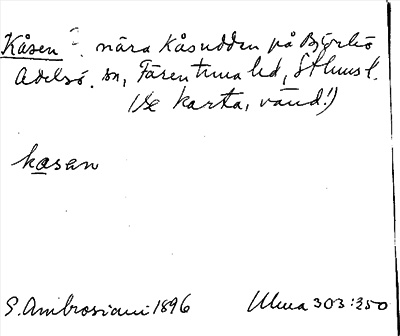 Kåsen nära Kåsudden på Björkö
Adelsö sn, Färentuna hd, Sthms l.
(Se karta, vänd!)
kasen
S. Ambrosiani 1896 Ulma 303:350